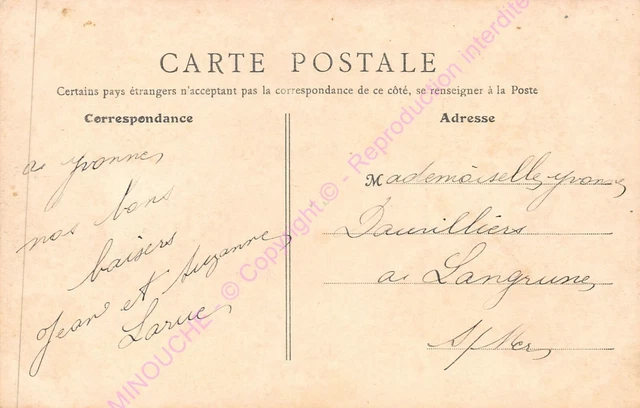 CARTE POSTALE
Certains pays étrangers n'acceptent pas la correspondance de ce côté, se renseigner à la Poste
Correspondance
a yvonne
nos bons
baisers
Jean et Suzanne
Larue
Adresse
Mademoiselle yvonne
Dauvilliers
a Langrune
s/Mer
MINOUCHE - © Copyright © - Reproduction interdite